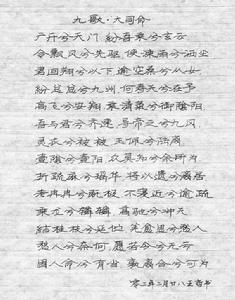 九歌·大司命
广开兮天门 纷吾乘兮玄云
令飘风兮先驱 使涷雨兮洒尘
君回翔兮以下 逾空桑兮从女
纷总总兮九州 何寿夭兮在予
高飞兮安翔 乘清气兮御阴阳
吾与君兮齐速 导帝之兮九坑
灵衣兮被被 玉佩兮陆离
壹阴兮壹阳 众莫知兮余所为
折疏麻兮瑶华 将以遗兮离居
老冉冉兮既极 不寖近兮愈疏
乘龙兮辚辚 高驰兮冲天
结桂枝兮延伫 羌愈思兮愁人
愁人兮奈何 愿若今兮无亏
固人命兮有当 孰离合兮可为
零三年二月廿八